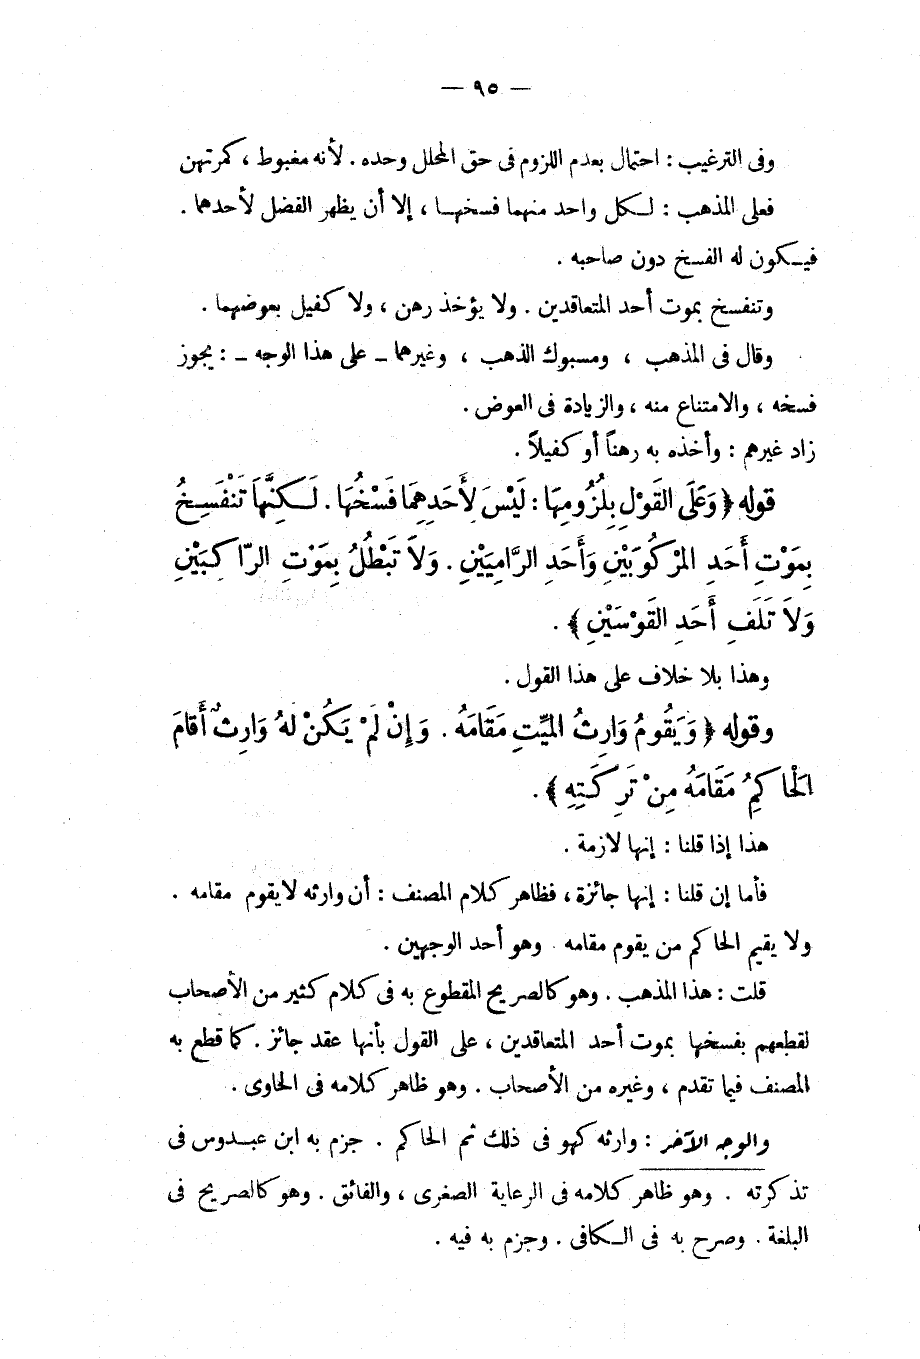 — ٩٥ —
وفى الترغيب : احتمال بعدم اللزوم فى حق المحلل وحده . لأنه مغبوط ، كمرتهن
فعلى المذهب : لـكل واحد منهما فسخهـا ، إلا أن يظهر الفضل لأحدهما .
فيـكون له الفسخ دون صاحبه .
وتنفسخ بموت أحد المتعاقدين . ولا يؤخذ رهن ، ولا كفيل بعوضهما .
وقال فى المذهب ، ومسبوك الذهب ، وغيرهما ـ على هذا الوجه ـ : يجوز
فسخه ، والامتناع منه ، والزيادة فى العوض .
زاد غيرهم : وأخذه به رهناً أو كفيلاً .
قوله ﴿ وَعَلَى القَوْلِ بِلُزُومِهَا : لَيْسَ لِأَحَدِهِمَا فَسْخُهَا . لَـكِنَّهَا تَنْفَسِخُ
بِمَوْتِ أَحَدِ المَرْكُوبَيْنِ وَأَحَدِ الرَّامِيَيْنِ . وَلاَ تَبْطُلُ بِمَوْتِ الرَّاكِبَيْنِ
وَلاَ تَلَفِ أَحَدِ القَوْسَيْنِ ﴾ .
وهذا بلا خلاف على هذا القول .
وقوله ﴿ وَيَقُومُ وَارِثُ المَيِّتِ مَقَامَهُ . وَإِنْ لَمْ يَكُنْ لَهُ وَارِثٌ أَقَامَ
الحَاكِمُ مَقَامَهُ مِنْ تَرِكَتِهِ ﴾ .
هذا إذا قلنا : إنها لازمة .
فأما إن قلنا : إنها جائزة ، فظاهر كلام المصنف : أن وارثه لايقوم مقامه .
ولا يقيم الحاكم من يقوم مقامه . وهو أحد الوجهين .
قلت : هذا المذهب . وهو كالصريح المقطوع به فى كلام كثير من الأصحاب
لقطعهم بفسخها بموت أحد المتعاقدين ، على القول بأنها عقد جائز . كما قطع به
المصنف فيما تقدم ، وغيره من الأصحاب . وهو ظاهر كلامه فى الحاوى .
والوجه الآخر : وارثه كهو فى ذلك ثم الحاكم . جزم به ابن عبـدوس فى
تذكرته . وهو ظاهر كلامه فى الرعاية الصغرى ، والفائق . وهو كالصريح فى
البلغة . وصرح به فى الـكافى . وجزم به فيه .